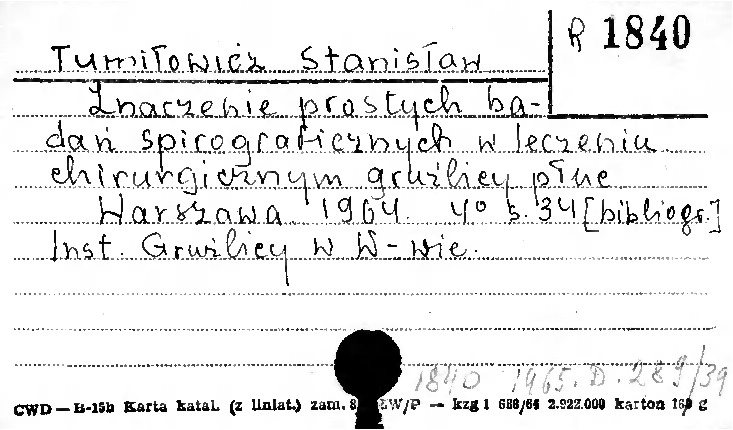 R 1840
Tumiłowicz Stanisław
Znaczenie prostych ba-
dań spirograficznych w leczeniu
chirurgicznym gruźlicy płuc
Warszawa 1964. 4° s. 34 [bibliogr.]
Inst. Gruźlicy w W-wie.
1840 1965.D.289/39
CWD — B-15b Karta katal. (z liniat.) zam. 8 W/P — kzg 1 688/64 2.922.000 karton 160 g